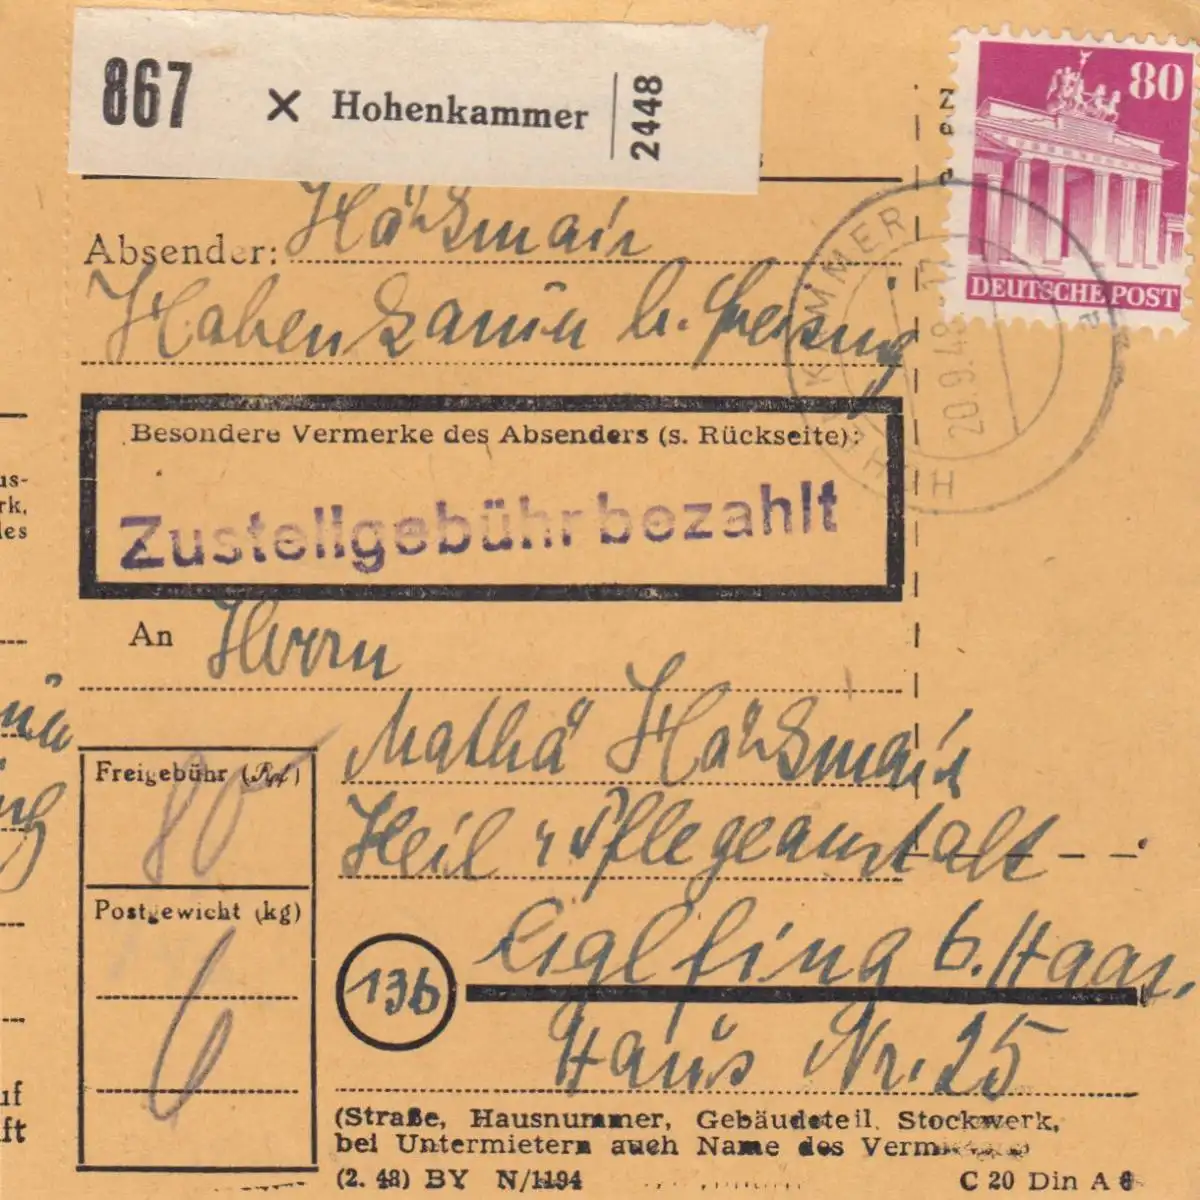 867 × Hohenkammer 2448
80
DEUTSCHE POST
Absender: Hartsmair
Hohenkamm b. Freising
HOHENKAMMER
20.9.48.-17
Besondere Vermerke des Absenders (s. Rückseite):
Zustellgebühr bezahlt
An Herrn
Mathä Hartsmair
Freigebühr (Rpf)
80
Heil u Pflegeanstalt
Postgewicht (kg)
6
13b Eglfing b. Haar.
Haus Nr. 25
(Straße, Hausnummer, Gebäudeteil, Stockwerk,
bei Untermietern auch Name des Vermieters)
(2. 48) BY N/1194
C 20 Din A 6
us-
rk,
des
uf
ft